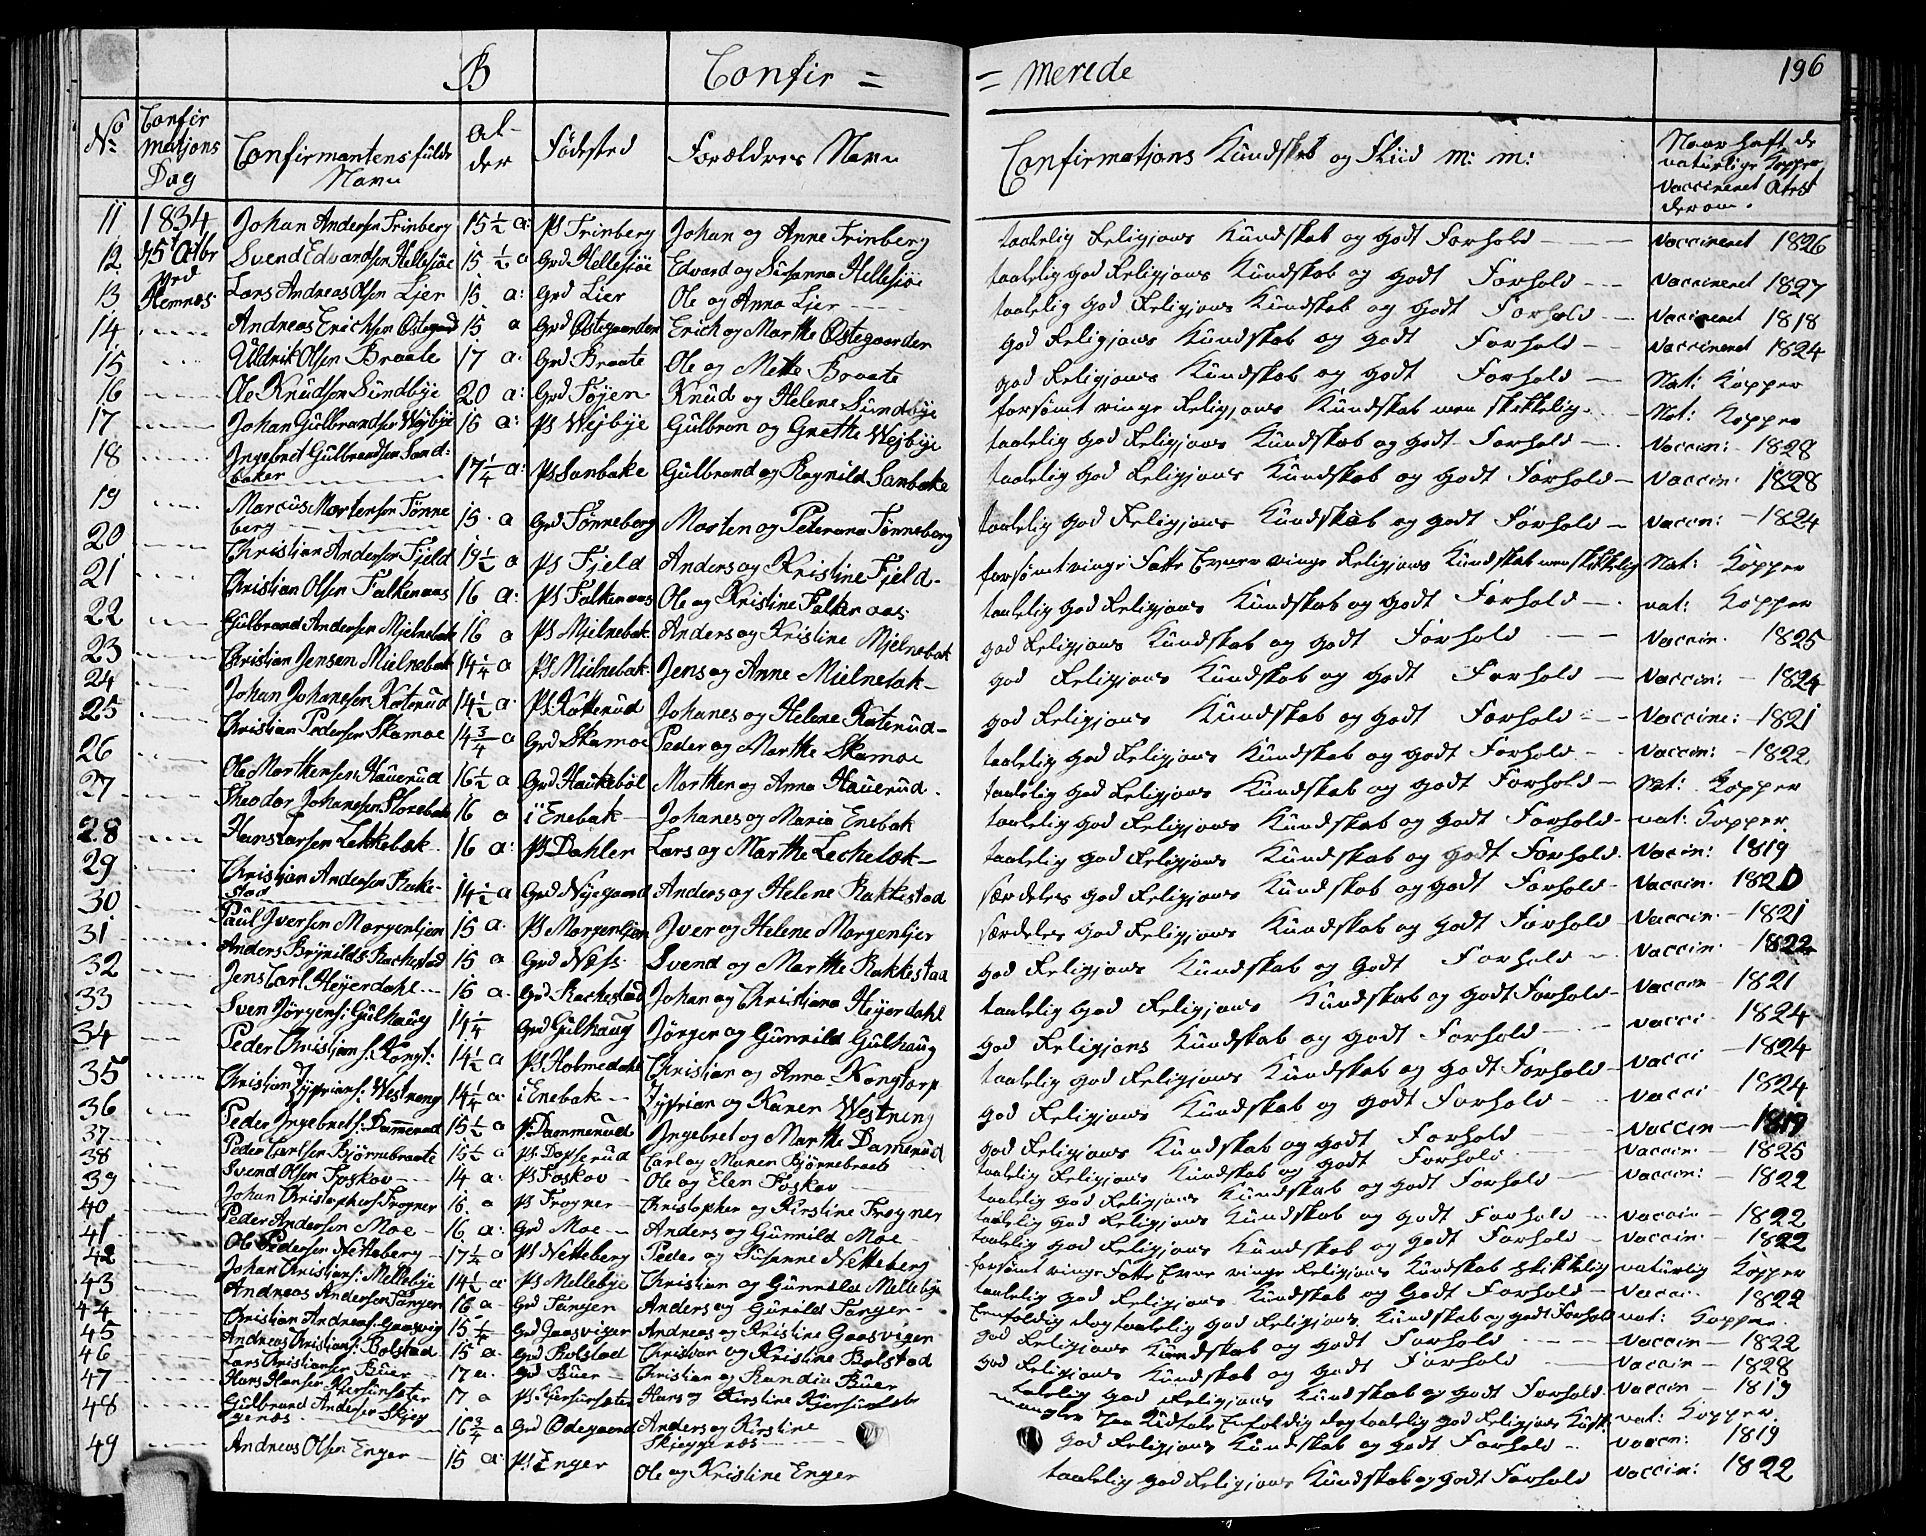 B Confir = = merede 196
No Confirmatjons Dag Confirmantens fulde Navn Alder Fødested Forældres Navn Confirmatjons Kundskab og Fliid m: m: Naar haft de naturlige Kopper vaccineret Atest derom.
11 1834 Johan Andersen Trinberg 15½ a: Ps Trinberg Johan og Anne Trinberg taalelig Religjons Kundskab og godt Forhold vaccineret 1826
12 Svend Edvardsen Hellesjøe 15½ a Grd Hellesjøe Edvard og Susanna Hellesjøe taalelig god Religjons Kundskab og godt Forhold vaccineret 1827
13 Hemnæs Lars Andreas Olsen Lier 15 a: Grd Lier Ole og Anna Lier taalelig god Religjons Kundskab og godt Forhold vaccineret 1818
14 Andreas Erichsen Østegaard 15 a Grd Østegaarden Erich og Marthe Østegaarden god Religjons Kundskab og godt Forhold vaccineret 1824
15 Uldrik Olsen Braate 17 a: Grd Braate Ole og Mette Braate god Religjons Kundskab og godt Forhold Nat: Kopper
16 Ole Knudsen Sundbye 20 a: Grd Tøjen Knud og Helene Sundbye forsømt ringe Religjons Kundskab men skikkelig Nat: Kopper
17 Johan Gulbrandsen Wejbye 15 a: Ps Wejbye Gulbran og Grethe Wejbye taalelig god Religjons Kundskab og godt Forhold vaccin: 1828
18 Ingebret Gulbrandsen Sandbaker 17¼ a: Ps Sanbake Gulbrand og Ragnild Sanbake taalelig god Religjons Kundskab og godt Forhold vaccin: 1828
19 Marcus Mortensen Tønneberg 15 a Grd Tønneberg Morten og Peterana Tønneberg taalelig god Religjons Kundskab og godt Forhold vaccin: 1824
20 Christian Andersen Fjeld 19½ a Ps Fjeld Anders og Kristine Fjeld forsømt ringe Fatte Evner ringe Religjons Kundskab men skikkelig Nat: Kopper
21 Christian Olsen Falkenaas 16 a: Ps Falkenaas Ole og Kristine Falkenaas taalelig god Religjons Kundskab og godt Forhold nat: Kopper
22 Gulbrand Andersen Mjelnebak 16 a Ps Mjelnebak Anders og Kristine Mjelnebak god Religjons Kundskab og godt Forhold vaccin. 1825
23 Christian Jensen Mielnebak 14¼ a Ps Mielnebak Jens og Anne Mielnebak god Religjons Kundskab og godt Forhold vaccin: 1824
24 Johan Johanesen Katerud 14½ a: Ps Katterud Johanes og Helene Katerud god Religjons Kundskab og godt Forhold vaccine: 1821
25 Christian Pedersen Skamoe 14¾ a Grd Skamoe Peder og Marthe Skamoe taalelig god Religjons Kundskab og godt Forhold vaccin: 1822
26 Ole Marthensen Hauerud 16½ a Grd Haukebøl Morthen og Anna Hauerud taalelig god Religjons Kundskab og godt Forhold Nat: Kopper
27 Theodor Johanesen Storebak 16 a i Enebak Johanes og Maria Enebak taalelig god Religjons Kundskab og godt Forhold nat: Kopper
28 Hans Larsen Lekkebæk 16 a: Ps Dahler Lars og Marthe Lechebæk taalelig god Religjons Kundskab og godt Forhold vaccin: 1819
29 Christian Andersen Rakkestad 14½ a Grd Nyegaard Anders og Helene Rakkestad særdeles god Religjons Kundskab og godt Forhold vaccin: 1820
30 Paul Iversen Morgenlier 15 a Ps Morgenlier Iver og Helene Morgenlier særdeles god Religjons Kundskab og godt Forhold vaccin 1821
31 Anders Brynilds: Rachestad 15 a Grd Næss Svend og Marthe Rakkestad god Religjons Kundskab og godt Forhold vaccin 1822
32 Jens Carl Heyerdahl 15 a Grd Rachestad Johan og Christiana Heyerdahl taalelig god Religjons Kundskab og godt Forhold vaccin 1821
33 Sven Jørgens: Gulhaug 14¼ Grd Gulhaug Jørgen og Gunnild Gulhaug god Religjons Kundskab og godt Forhold vacci 1824
34 Peder Christians: Kongt: 14½ a Ps Holmedahl Christian og Anna Kongtorp taalelig god Religjons Kundskab og godt Forhold vacci 1824
35 Christian Zyprians: Westreng 14¼ a: i Enebak Zyprian og Karen Westreng god Religjons Kundskab og godt Forhold vacci 1824
36 Peder Ingebrets: Dammerud 15½ a Ps Dammerud Ingebret og Marthe Damerud god Religjons Kundskab og godt Forhold vaccin 1819
37 Peder Carlsen Bjørnebraate 15½ a Ps Dopserud Carl og Maren Bjørnebraate taalelig god Religjons Kundskab og godt Forhold vaccin 1825
38 Svend Olsen Foskov 14 a: Ps Foskov Ole og Elen Foskov taalelig god Religjons Kundskab og godt Forhold vaccin: 1822
39 Johan Christophers: Frogner 16 a Ps Frogner Christopher og Kirstine Frogner taalelig god Religjons Kundskab og godt Forhold vaccin 1822
40 Peder Andersen Moe 16 a: Grd Moe Anders og Gunnild Moe taalelig god Religjons Kundskab og godt Forhold vaccin: 1822
41 Ole Pedersen Netteberg 17¼ a Ps Netteberg Peder og Susanne Netteberg forsømt ringe Fatte Evne ringe Religjons Kundskab skikkelig naturlig Kopper
42 Johan Christians: Mellebye 14½ a: Ps Mellebye Christian og Gunnild Mellebye taalelig god Religjons Kundskab og godt Forhold vaccin 1822
43 Andreas Andersen Tanger 16 a Grd Tanger Anders og Gunild Tanger Eenfoldig dog taalelig god Religjons Kundskab og godt Forhold nat: Kopper
44 Christian Andreas: Gaasvig 15¼ Grd Gaasviger Andreas og Kristine Gaasviger god Religjons Kundskab og godt Forhold vaccin 1822
45 Andreas Christians: Bolstad 15 a Grd Bolstad Christian og Kristine Bolstad god Religjons Kundskab og godt Forhold vaccin 1828
46 Lars Christiansen Buer 17 a. Grd Buer Christian og Randia Buer taalelig god Religjons Kundskab og godt Forhold vaccin 1819
47 Hans Hansen Kiersunsæter 17 a Ps Kiersunsæter Hans og Kirstine Kjersunsæter mangler Taa Eenfoldig dog taalelig god Religjons Kundsk: nat: Kopper
48 Gulbrand Andersen Skjeggenæs 16¾ a Grd Ødegaard Anders og Kirstine Skjeggenæs god Religjons Kundskab og godt Forhold vaccin: 1819
49 Andreas Olsen Enger 15 a: Ps Enger Ole og Kristine Enger taalelig god Religjons Kundskab og godt Forhold vaccin: 1822